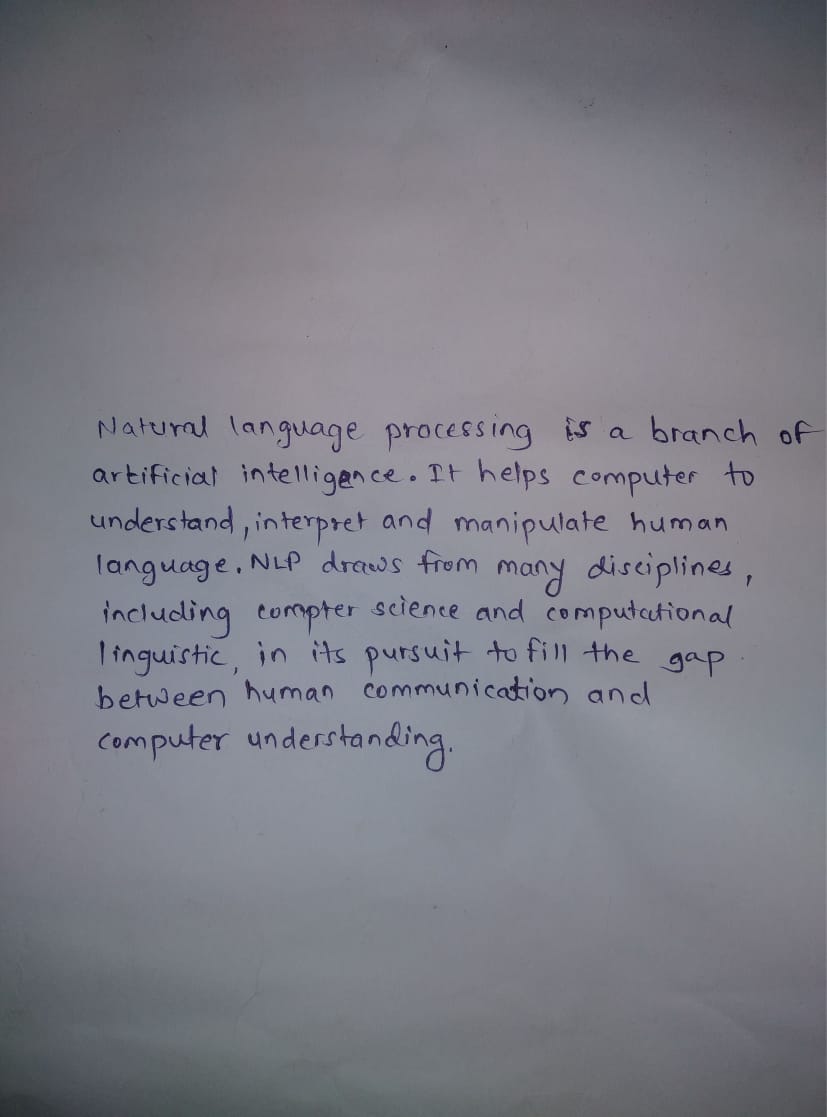 Natural language processing is a branch of
artificial intelligence. It helps computer to
understand, interpret and manipulate human
language. NLP draws from many disciplines,
including compter science and computational
linguistic, in its pursuit to fill the gap
between human communication and
computer understanding.